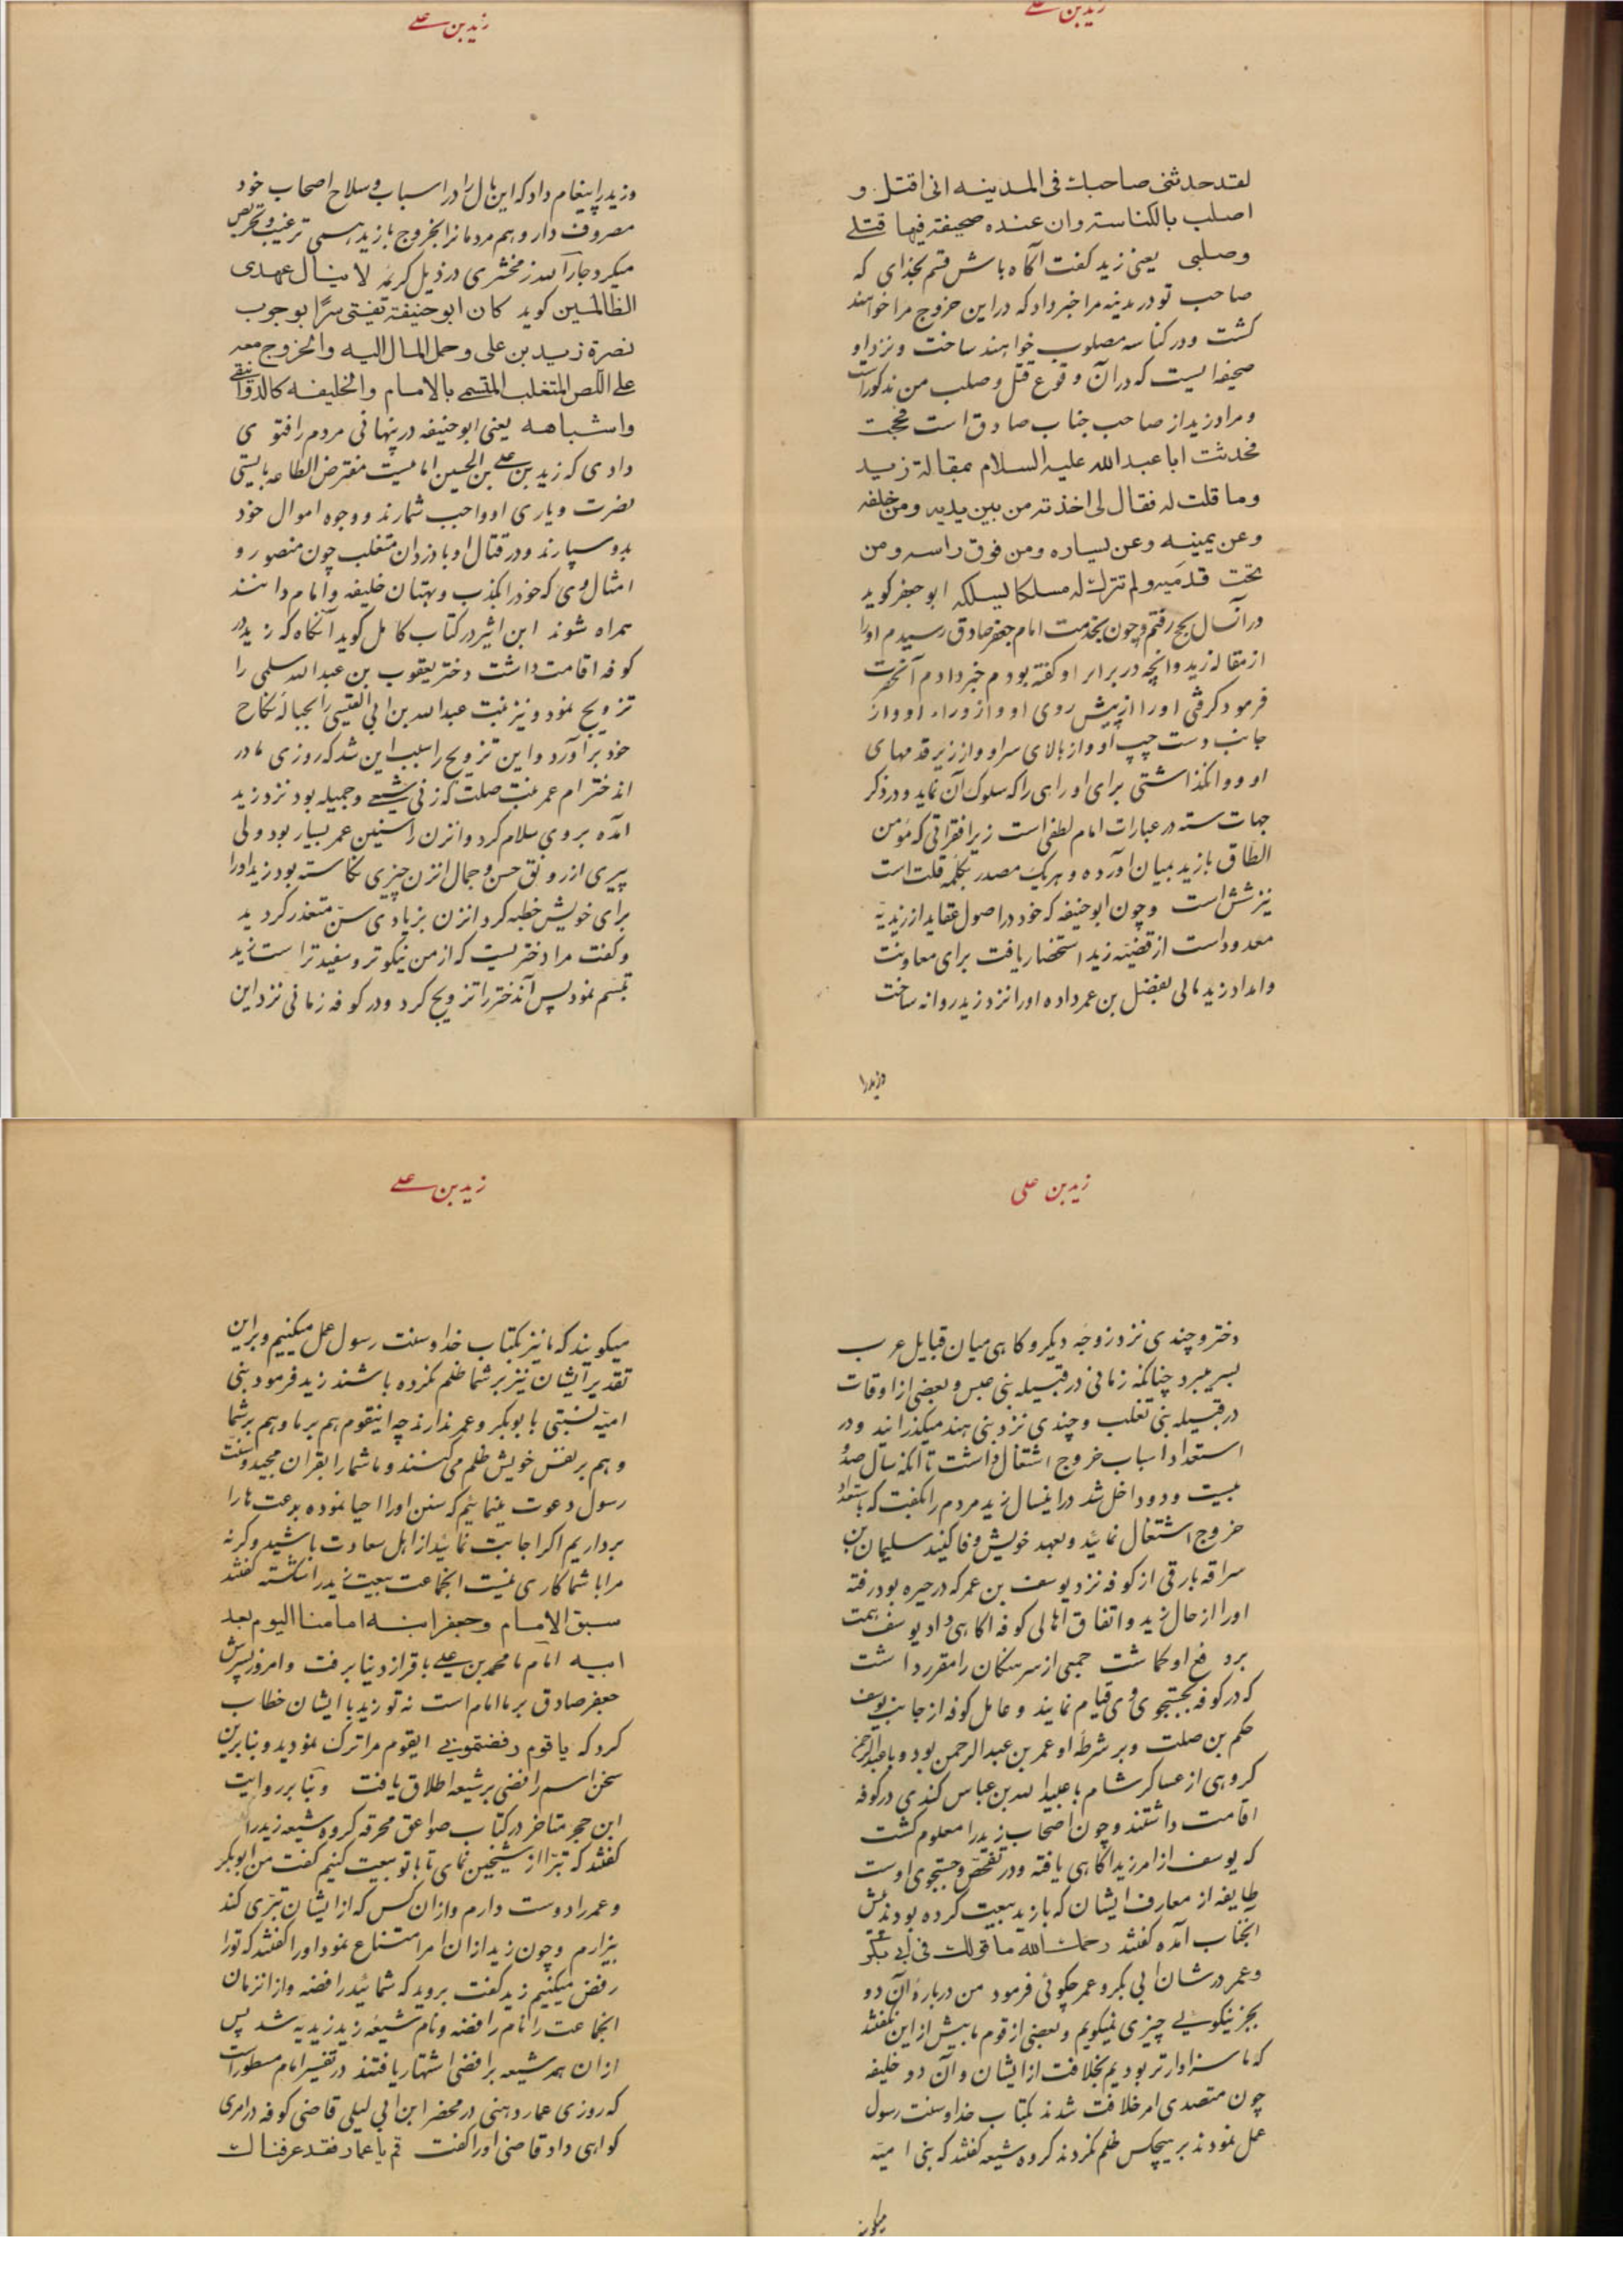 زید بن علی
لقد حدثنی صاحبک فی المدینه انی اقتل و
اصلب بالکناسة وان عنده صحیفة فیها قتلے
وصلبی یعنی زید کفت آکاه باش قسم بخدای که
صاحب تو در مدینه مرا خبر داد که در این خروج مرا خواهند
کشت و در کناسه مصلوب خواهند ساخت و نزد او
صحیفه ایست که در آن وقوع قتل و صلب من مذکور است
و مراد زید از صاحب جناب صادق است فحججت
فحدثت ابا عبد الله علیه السلام بمقالة زید
وما قلت له فقال لی اخذته من بین یدیه ومن خلفه
وعن یمینه وعن یساره ومن فوق راسه ومن
تحت قدمیه ولم تترک له مسلکا یسلکه ابو جعفر کوید
در آنسال بحج رفتم و چون بخدمت امام جعفر صادق رسیدم او را
از مقاله زید و آنچه در برابر او کفته بودم خبر دادم آنحضرت
فرمود کرفتی او را از پیش روی او و از وراء او و از
جانب دست چپ او و از بالای سر او و از زیر قدمهای
او و وا نکذاشتی برای او راهی را که سلوک آن نماید و در ذکر
جهات سته در عبارات امام لطفی است زیرا فقراتی که مؤمن
الطاق با زید بمیان آورده و هر یک مصدر بکلمه قلت است
نیز شش است و چون ابو حنیفه که خود در اصول عقاید از زیدیه
معدود است از قضیه زید استحضار یافت برای معاونت
و امداد زید مالی بفضل بن عمر داده او را نزد زید روانه ساخت
وزید را
زید بن علے
وزید را پیغام داد که این مال را در اسباب و سلاح اصحاب خود
مصروف دار و هم مردمانرا بخروج با زید همی ترغیب و تحریص
میکرد جار الله زمخشری در ذیل کریمه لا ینال عهدی
الظالمین کوید کان ابو حنیفة یفتی سرًا بوجوب
نصرة زید بن علی وحمل المال الیه والخروج معه
علی اللص المتغلب المتسمی بالامام والخلیفه کالدوانیقی
واشباهه یعنی ابو حنیفه در پنهانی مردم را فتوی
دادی که زید بن علے بن الحسین امامیست مفترض الطاعه بایستی
نصرت و یاری او واجب شمارند و وجوه اموال خود
بدو سپارند و در قتال او با دزدان متغلب چون منصور و
امثال وی که خود را بکذب و بهتان خلیفه و امام دانند
همراه شوند ابن اثیر در کتاب کامل کوید آنکاه که زید در
کوفه اقامت داشت دختر یعقوب بن عبد الله سلمی را
تزویج نمود و نیز بنت عبد الله بن ابی القیسی را بحباله نکاح
خود برآورد و این تزویج را سبب این شد که روزی مادر
اندختر ام عمر بنت صلت که زنی شیعے و جمیله بود نزد زید
آمده بر وی سلام کرد و انزن را سنین عمر بسیار بود ولی
پیری از رونق حسن و جمال انزن چیزی نکاسته بود زید او را
برای خویش خطبه کرد انزن بزیادی سنّ متعذر کردید
و کفت مرا دختریست که از من نیکوتر و سفیدتر است زید
تبسم نمود پس آندختر را تزویج کرد و در کوفه زمانی نزد این
زید بن علی
دختر و چندی نزد زوجه دیکر و کاهی میان قبایل عرب
بسر میبرد چنانکه زمانی در قبیله بنی عبس و بعضی از اوقات
در قبیله بنی تغلب و چندی نزد بنی هند میکذرانید و در
استعداد اسباب خروج اشتغال داشت تا آنکه سال صد و
بیست و دو داخل شد در اینسال زید مردم را بکفت که باستعداد
خروج اشتغال نمائید و بعهد خویش وفا کنید سلیمان بن
سراقه بارقی از کوفه نزد یوسف بن عمر که در حیره بود رفته
او را از حال زید و اتفاق اهالی کوفه اکاهی داد یوسف همت
بر دفع او کماشت جمعی از سرهنکان را مقرر داشت
که در کوفه بجستجوی وی قیام نمایند و عامل کوفه از جانب یوسف
حکم بن صلت و بر شرطه او عمر بن عبد الرحمن بود و با عبد الرحمن
کروهی از عساکر شام با عبید الله بن عباس کندی در کوفه
اقامت داشتند و چون اصحاب زید را معلوم کشت
که یوسف از امر زید اکاهی یافته و در تفحص و جستجوی اوست
طایفه از معارف ایشان که با زید بیعت کرده بودند پیش
انجناب آمده کفتند رحمک الله ما قولک فی ابی بکر
وعمر در شان ابی بکر و عمر چکوئی فرمود من درباره آن دو
بجز نیکویے چیزی نمیکویم و بعضی از قوم ما پیش از این بکفتند
که ما سزاوارتر بودیم بخلافت از ایشان و آن دو خلیفه
چون متصدی امر خلافت شدند بکتاب خدا و سنت رسول
عمل نمودند بر هیچکس ظلم نکردند کروه شیعه کفتند که بنی امیّه
میکویند
زید بن علے
میکویند که ما نیز بکتاب خدا و سنت رسول عمل میکنیم و بر این
تقدیر ایشان نیز بر شما ظلم نکرده باشند زید فرمود بنی
امیّه نسبتی با بوبکر و عمر ندارند چه اینقوم هم بر ما و هم بر شما
و هم بر نفس خویش ظلم می کنند و ما شما را بقران مجید و سنت
رسول دعوت مینمائیم که سنن او را احیا نموده بدعت ها را
برداریم اکر اجابت نمائید از اهل سعادت باشید و کرنه
مرا با شما کاری نیست انجماعت بیعت زید را شکسته کفتند
سبق الامام وجعفر ابنه امامنا الیوم بعد
ابیه امام ما محمد بن علے باقر از دنیا برفت و امروز پسرش
جعفر صادق بر ما امام است نه تو زید با ایشان خطاب
کرد که یا قوم رفضتمونی ایقوم مرا ترک نمودید و بنابرین
سخن اسم رافضی بر شیعه اطلاق یافت و بنا بر روایت
ابن حجر متاخر در کتاب صواعق محرقه کروه شیعه زید را
کفتند که تبرّا از شیخین نمای تا با تو بیعت کنیم کفت من ابوبکر
و عمر را دوست دارم و از ان کس که از ایشان تبرّی کند
بیزارم و چون زید از ان امر امتناع نمود او را کفتند که تو را
رفض میکنیم زید کفت بروید که شمائید رافضه و از انزمان
انجماعت را نام رافضه و نام شیعه زید زیدیه شد پس
از ان همه شیعه برافضی اشتهار یافتند در تفسیر امام مسطور است
که روزی عمار دهنی در محضر ابن ابی لیلی قاضی کوفه در امری
کواهی داد قاضی او را کفت قم یا عمار فقد عرفناک